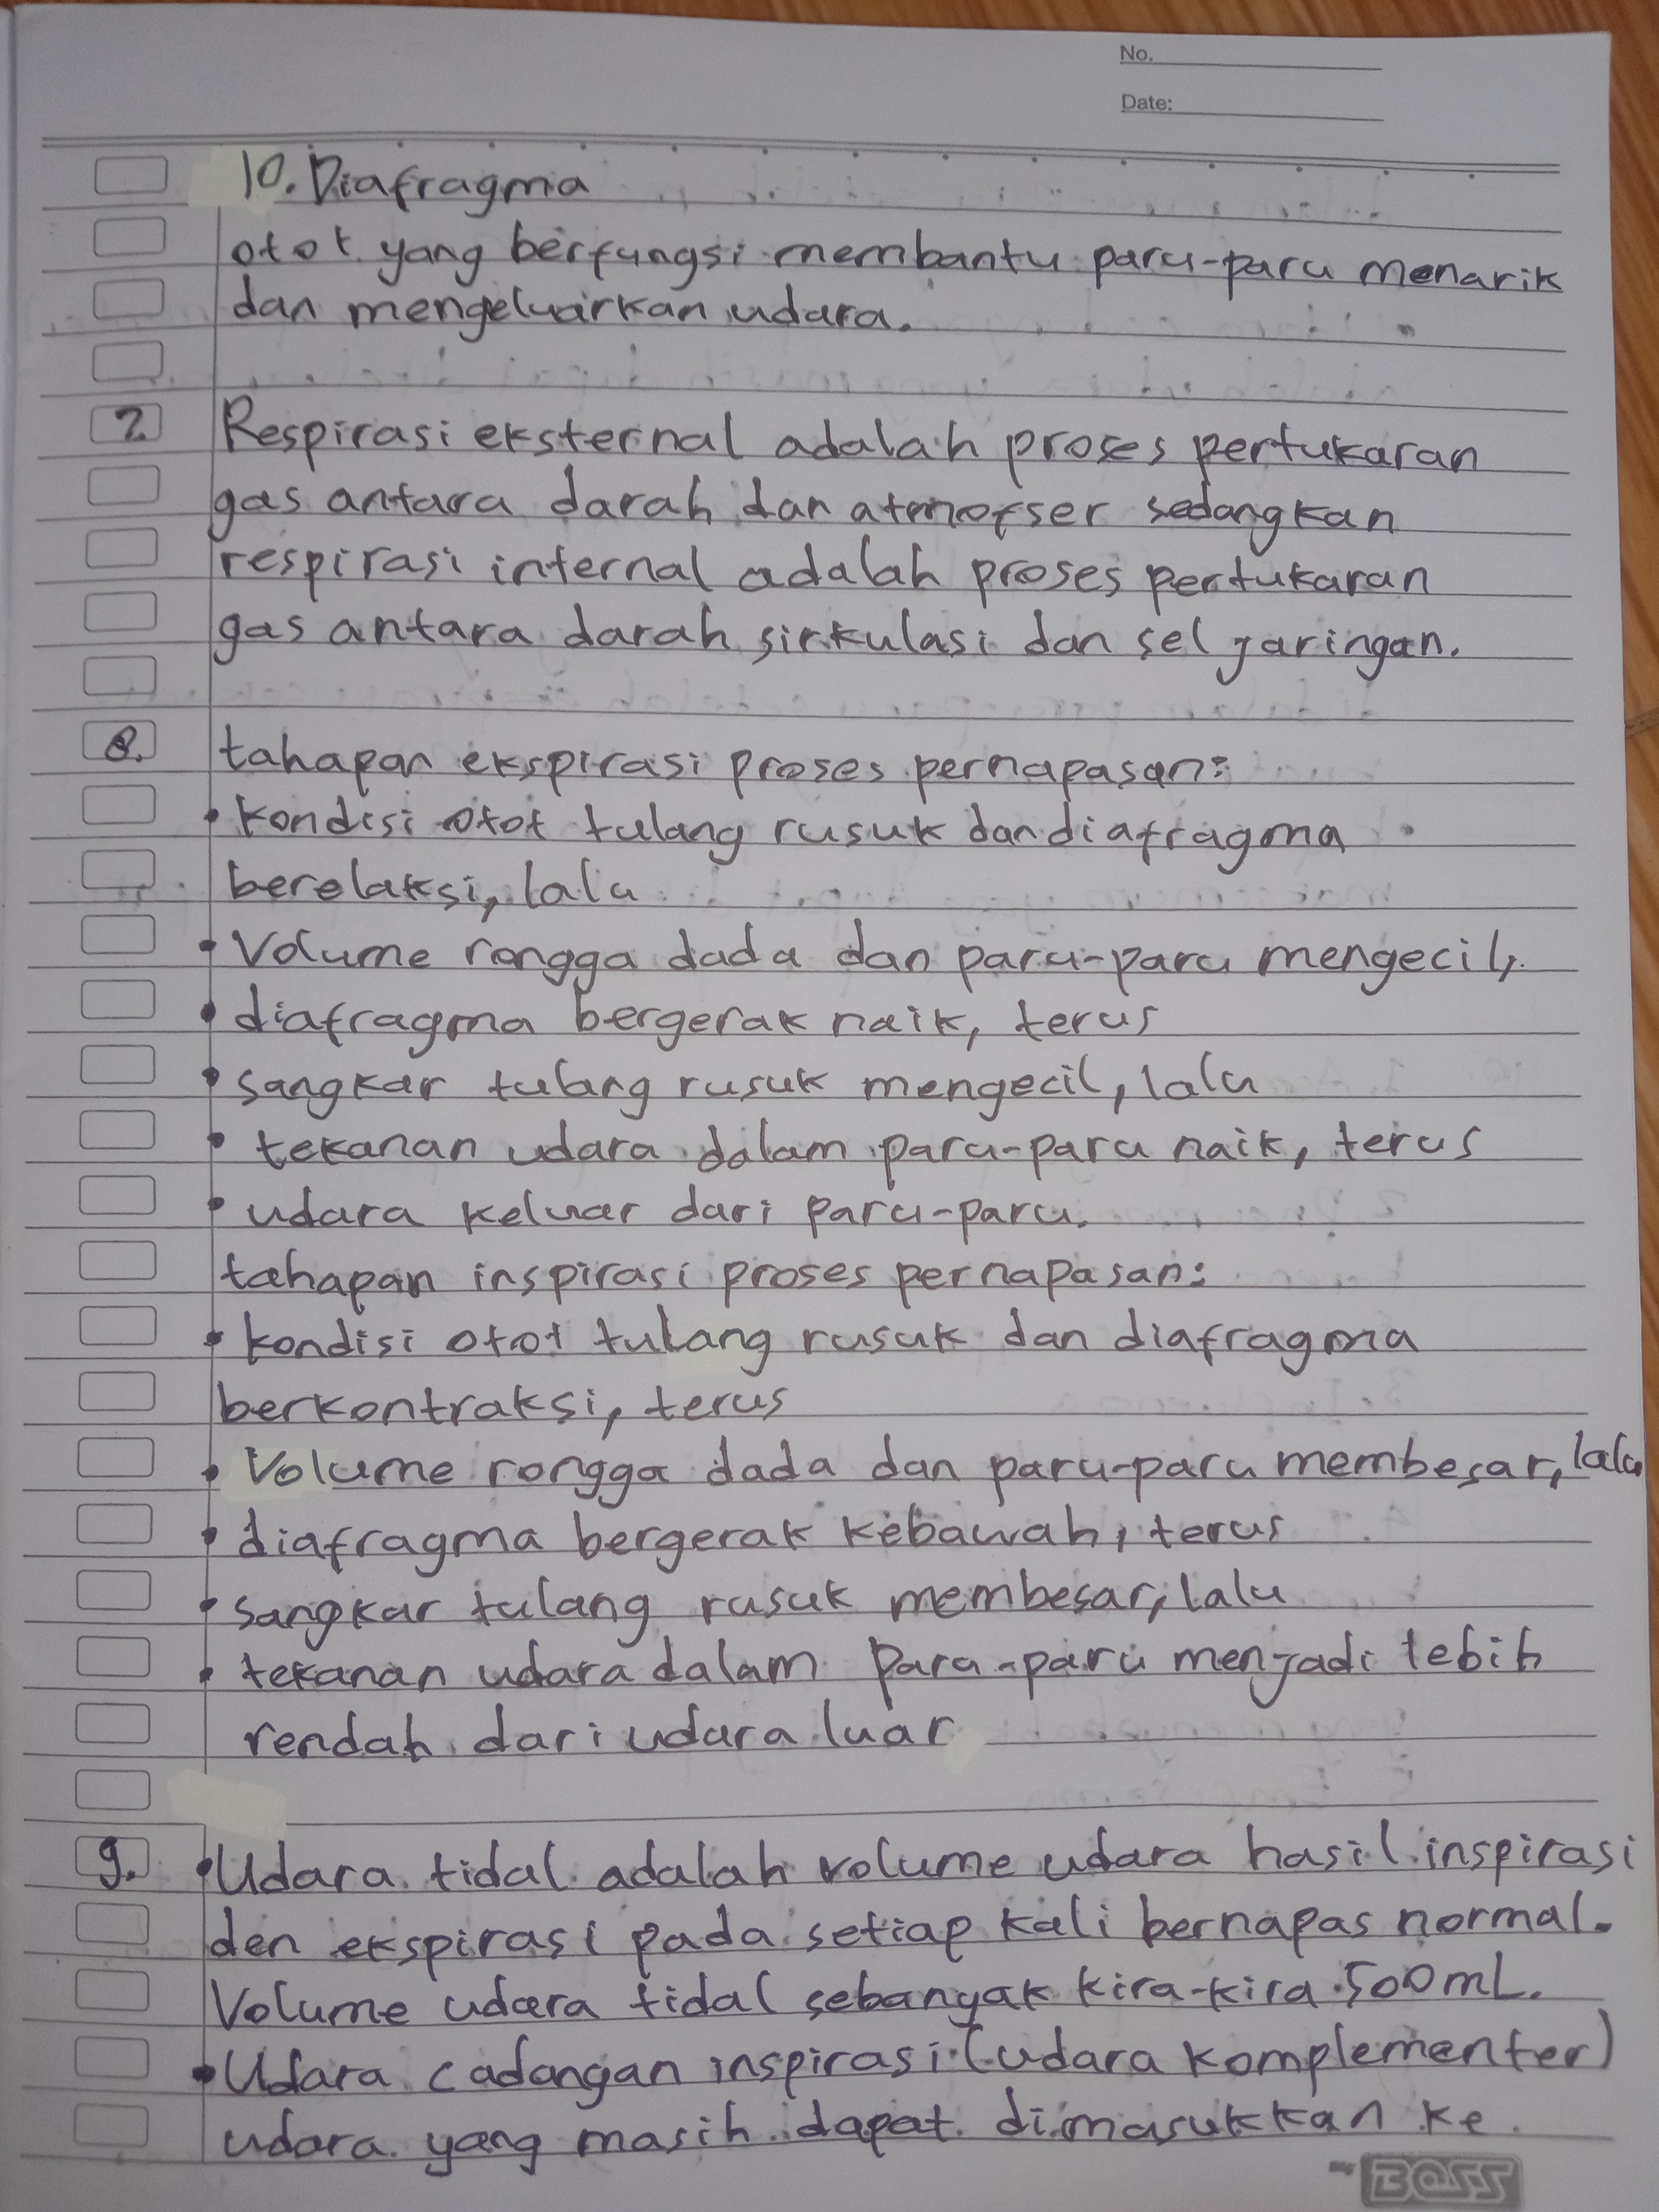 No.
Date:
10. Diafragma
otot yang berfungsi membantu paru-paru menarik
dan mengeluarkan udara.
7. Respirasi eksternal adalah proses pertukaran
gas antara darah dan atmofser sedangkan
respirasi internal adalah proses pertukaran
gas antara darah sirkulasi dan sel jaringan.
8. tahapan ekspirasi proses pernapasan:
• kondisi otot tulang rusuk dan diafragma
berelaksi, lalu
• Volume rongga dada dan paru-paru mengecil,
• diafragma bergerak naik, terus
• sangkar tulang rusuk mengecil, lalu
• tekanan udara dalam paru-paru naik, terus
• udara keluar dari paru-paru.
tahapan inspirasi proses pernapasan:
• kondisi otot tulang rusuk dan diafragma
berkontraksi, terus
• Volume rongga dada dan paru-paru membesar, lalu
• diafragma bergerak kebawah, terus
• sangkar tulang rusuk membesar, lalu
• tekanan udara dalam paru-paru menjadi lebih
rendah dari udara luar
9. • Udara tidal adalah volume udara hasil inspirasi
den ekspirasi pada setiap kali bernapas normal.
Volume udara tidal sebanyak kira-kira 500mL.
• Udara cadangan inspirasi (udara komplementer)
udara yang masih dapat dimasukkan ke
BOSS